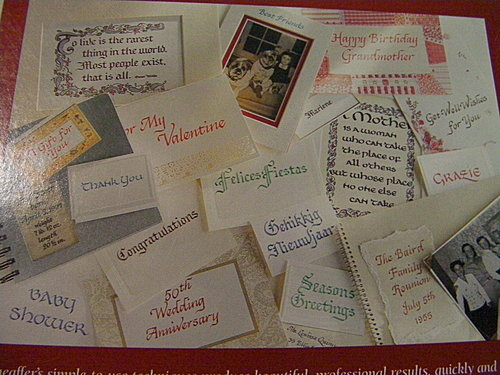 To live is the rarest
thing in the world.
Most people exist,
that is all.
Best Friends
Happy Birthday
Grandmother
Marlene
Get-Well-Wishes
for You
A Gift for
You
For My
Valentine
Thank You
Felices Fiestas
A Mother
is a woman
who can take
the place of
all others
but whose place
no one else
can take
Grazie
Congratulations
Gelukkig
Nieuwjaar
The Baird
Family
Reunion
July 5th
1955
Baby
Shower
50th
Wedding
Anniversary
Seasons
Greetings
weight
7 lb. 12 oz.
length
20 ½ in.
simple to use techniques produce beautiful, professional results, quickly and